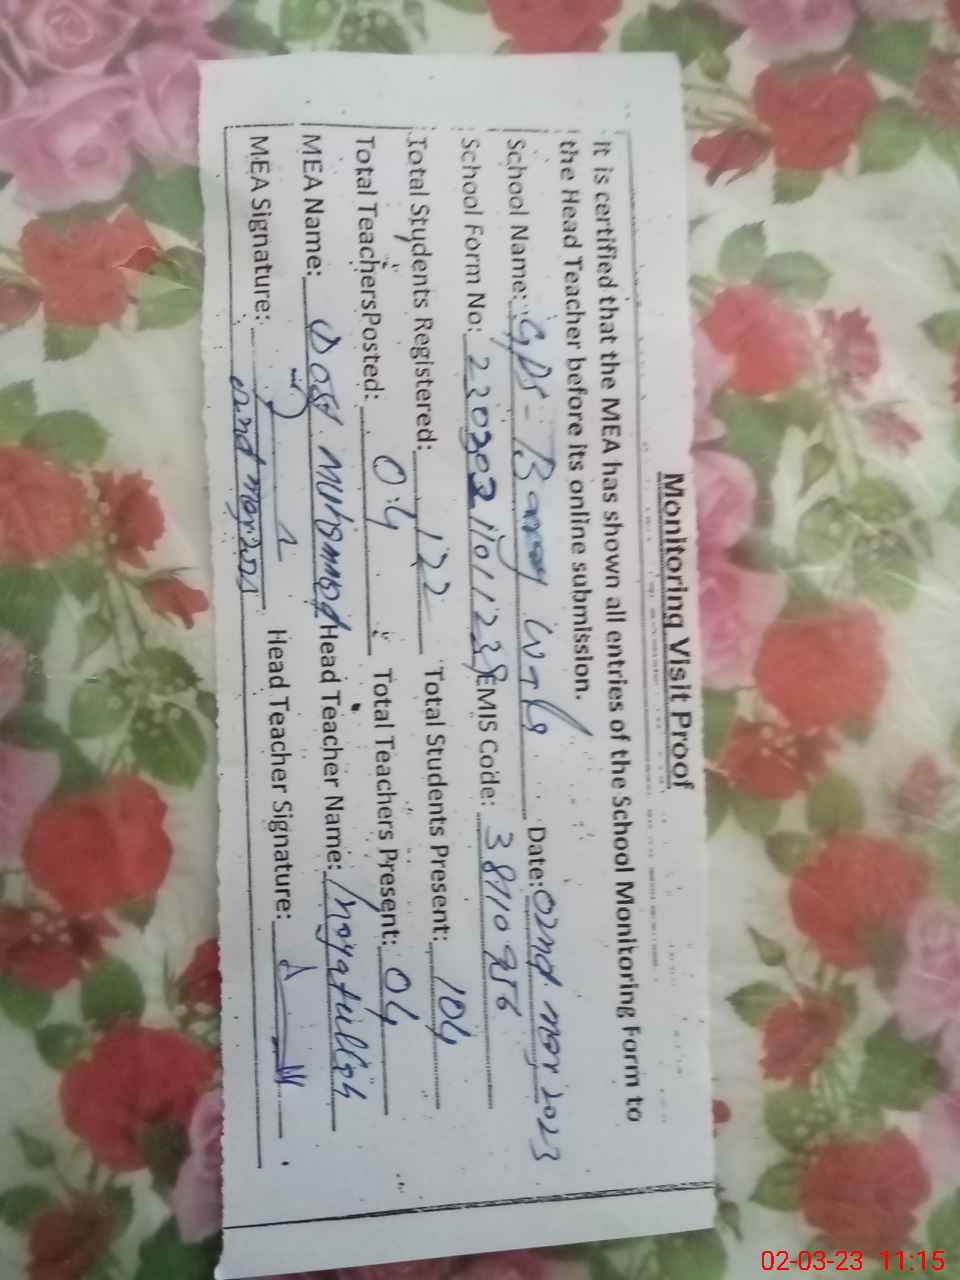 Monitoring Visit Proof
It is certified that the MEA has shown all entries of the School Monitoring Form to
the Head Teacher before its online submission.
School Name: GPS - Date: 02nd mar 2023
School Form No: EMIS Code:
Total Students Registered: 122 Total Students Present: 104
Total Teachers Posted: 04 Total Teachers Present: 04
MEA Name: Dost Muhammad Head Teacher Name: Inayatullah
MEA Signature: Head Teacher Signature:
02nd mar 2023
02-03-23 11:15